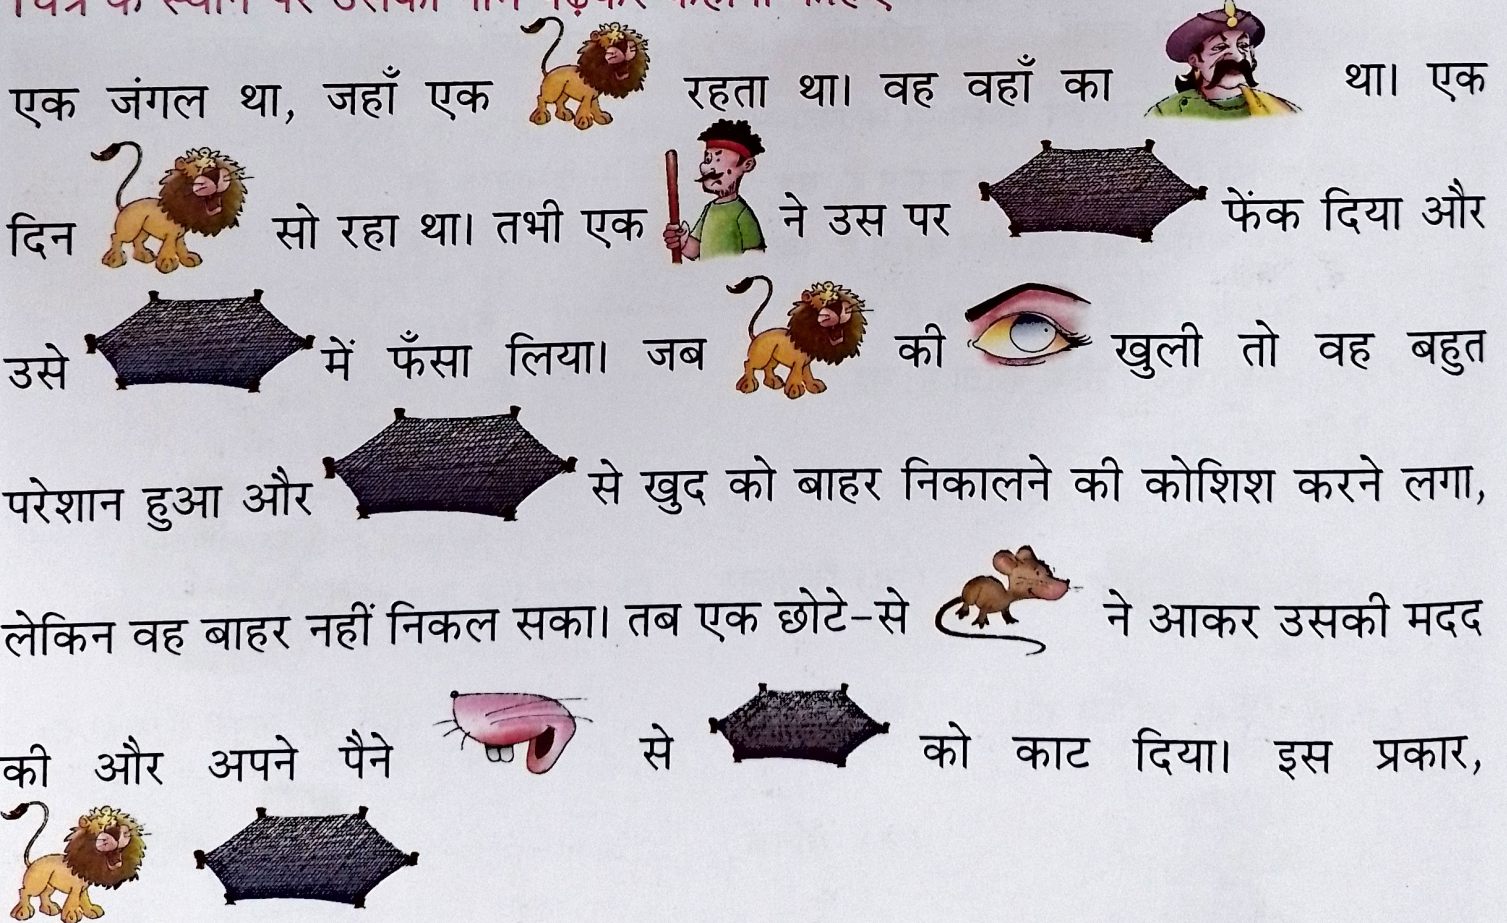 के स्थान पर
एक जंगल था, जहाँ एक रहता था। वह वहाँ का था। एक
दिन सो रहा था। तभी एक ने उस पर फेंक दिया और
उसे में फँसा लिया। जब की खुली तो वह बहुत
परेशान हुआ और से खुद को बाहर निकालने की कोशिश करने लगा,
लेकिन वह बाहर नहीं निकल सका। तब एक छोटे-से ने आकर उसकी मदद
की और अपने पैने से को काट दिया। इस प्रकार,